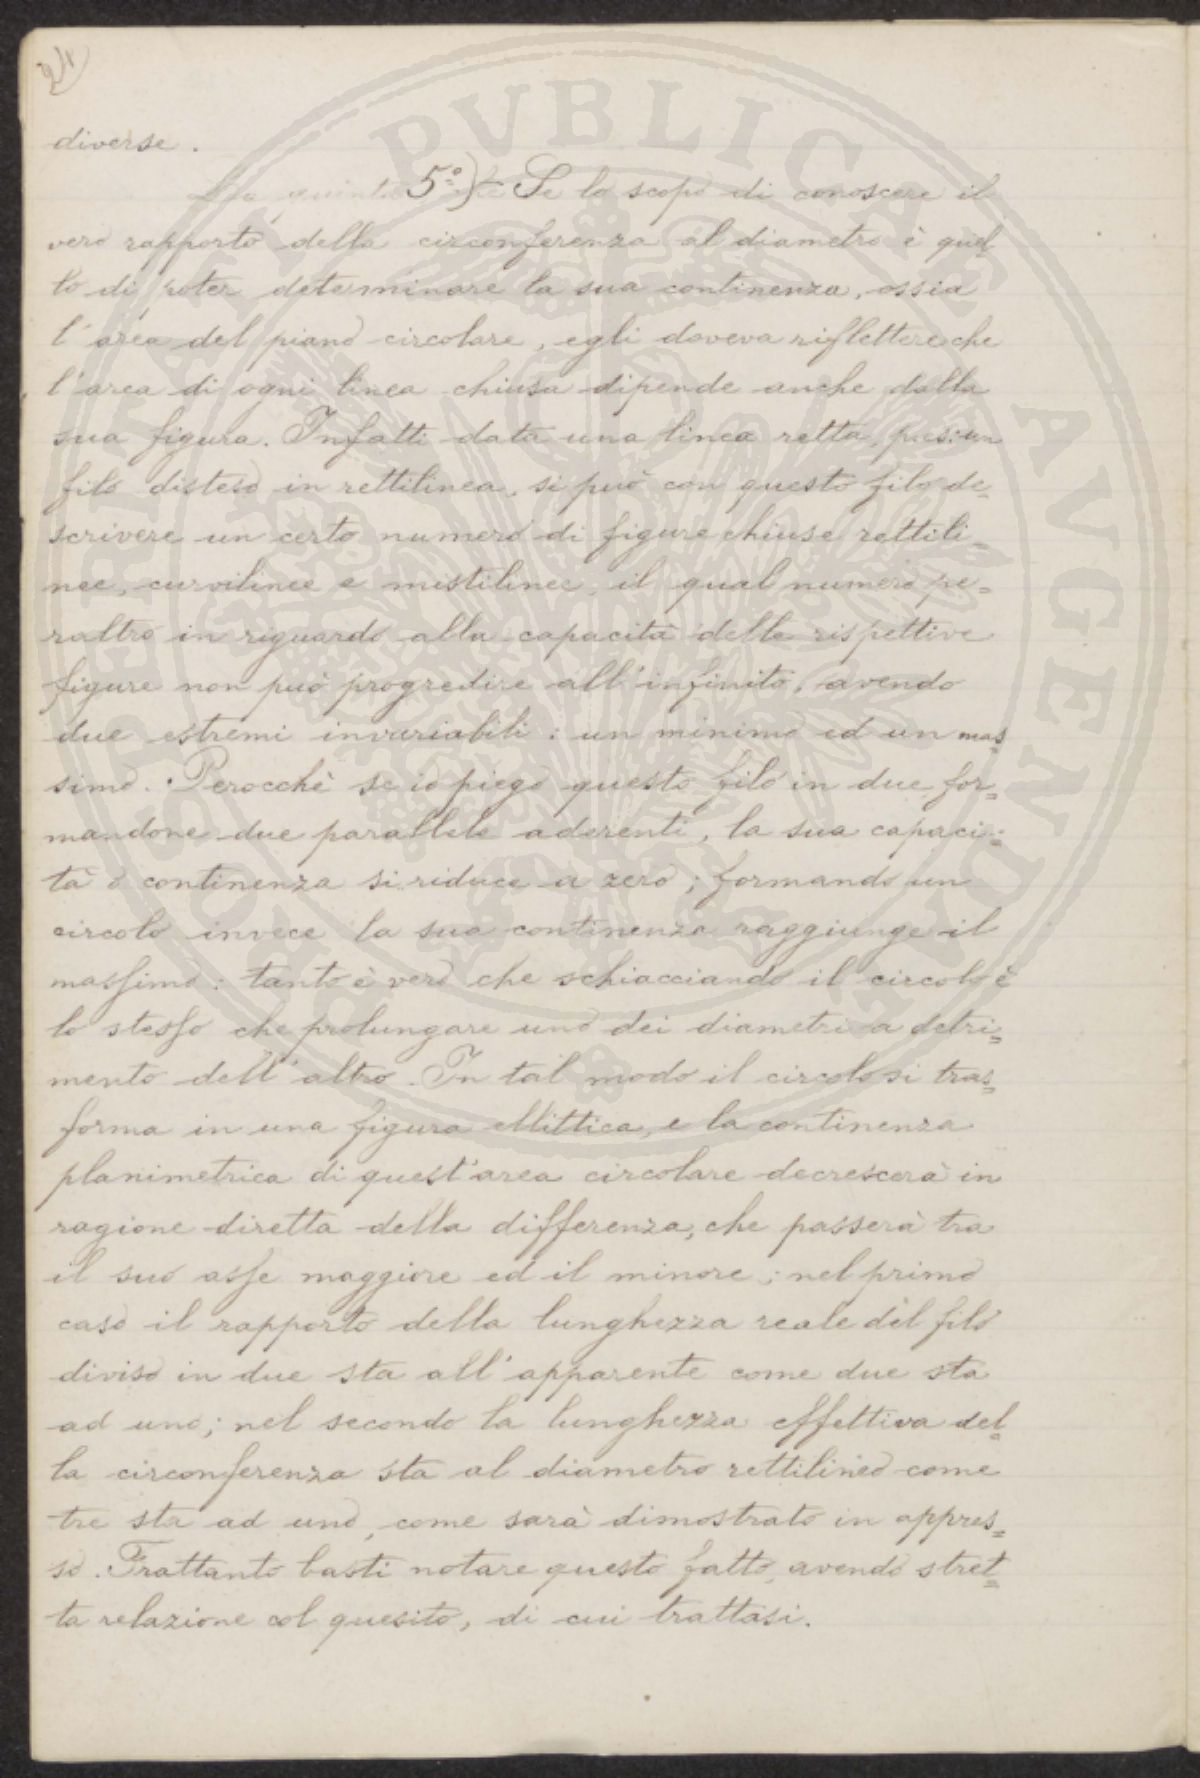 24
diverse.
5º) Se lo scopo di conoscere il
vero rapporto della circonferenza al diametro è quel
lo di poter determinare la sua continenza, ossia
l'area del piano circolare, egli doveva riflettere che
l'area di ogni linea chiusa dipende anche dalla
sua figura. Infatti data una linea retta, p.es: un
filo disteso in rettilinea, si può con questo filo de=
scrivere un certo numero di figure chiuse rettili=
nee, curvilinee e mistilinee, il qual numero pe=
raltro in riguardo alla capacità delle rispettive
figure non può progredire all'infinito, avendo
due estremi invariabili: un minimo ed un mas=
simo. Perocchè se io piego questo filo in due for=
mandone due parallele aderenti, la sua capaci=
tà o continenza si riduce a zero; formando un
circolo invece la sua continenza raggiunge il
massimo: tanto è vero che schiacciando il circolo è
lo stesso che prolungare uno dei diametri a detri=
mento dell'altro. In tal modo il circolo si tras=
forma in una figura ellittica, e la continenza
planimetrica di quest'area circolare decrescerà in
ragione diretta della differenza, che passerà tra
il suo asse maggiore ed il minore; nel primo
caso il rapporto della lunghezza reale del filo
diviso in due sta all'apparente come due sta
ad uno; nel secondo la lunghezza effettiva del=
la circonferenza sta al diametro rettilineo come
tre sta ad uno, come sarà dimostrato in appres=
so. Frattanto basti notare questo fatto, avendo stret=
ta relazione col quesito, di cui trattasi.